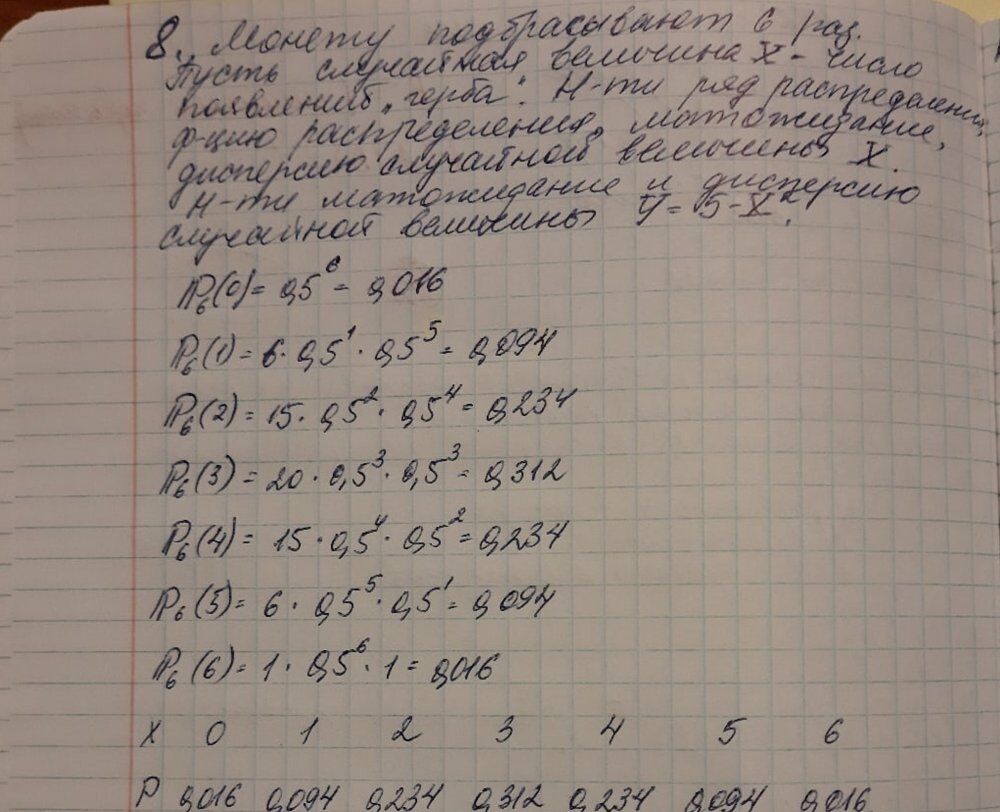 8. Монету подбрасывают 6 раз.
Пусть случайная величина X - число
появлений „герба“. Н-ти ряд распределения,
ф-цию распределения, матожидание,
дисперсию случайной величины X.
Н-ти матожидание и дисперсию
случайной величины У = 5-X².
P₆(0) = 0,5⁶ = 0,016
P₆(1) = 6 · 0,5¹ · 0,5⁵ = 0,094
P₆(2) = 15 · 0,5² · 0,5⁴ = 0,234
P₆(3) = 20 · 0,5³ · 0,5³ = 0,312
P₆(4) = 15 · 0,5⁴ · 0,5² = 0,234
P₆(5) = 6 · 0,5⁵ · 0,5¹ = 0,094
P₆(6) = 1 · 0,5⁶ · 1 = 0,016
X 0 1 2 3 4 5 6
P 0,016 0,094 0,234 0,312 0,234 0,094 0,016